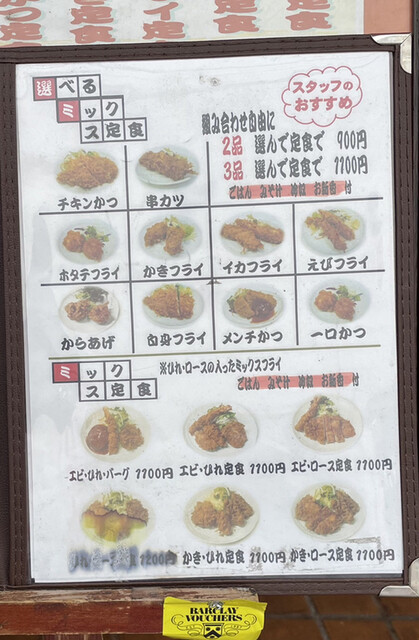 選べる
ミックス定食
スタッフの
おすすめ
組み合わせ自由に
2品 選んで定食で 900円
3品 選んで定食で 1100円
ごはん みそ汁 冷奴 お新香 付
チキンかつ 串カツ
ホタテフライ かきフライ イカフライ えびフライ
からあげ 白身フライ メンチかつ 一口かつ
ミックス定食
※ひれ・ロースの入ったミックスフライ
ごはん みそ汁 冷奴 お新香 付
エビ・ひれ・バーグ 1100円 エビ・ひれ定食 1100円 エビ・ロース定食 1100円
1200円 かき・ひれ定食 1100円 かき・ロース定食 1100円
BARCLAY
VOUCHERS